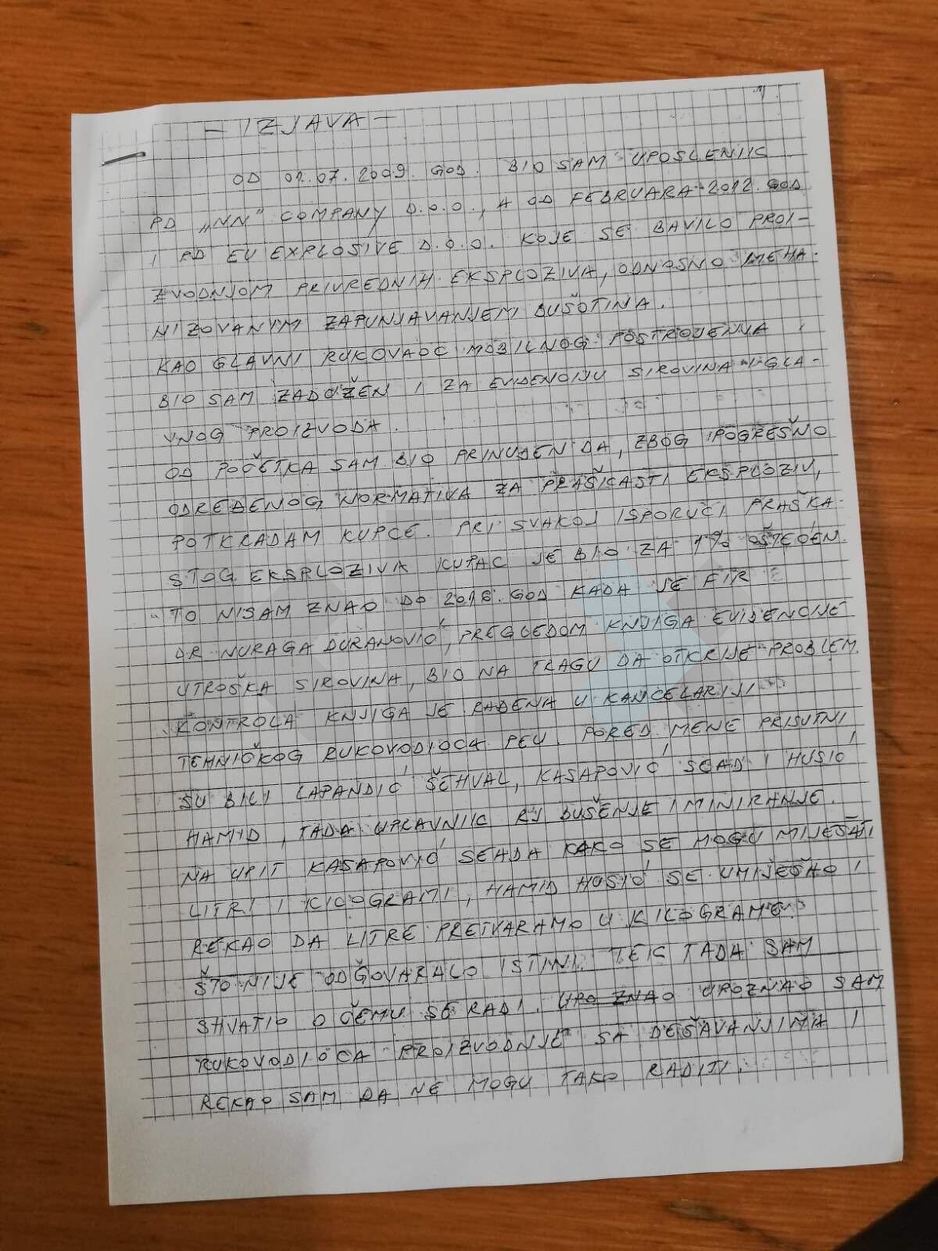 - IZJAVA -
OD 01.07.2009. GOD. BIO SAM UPOSLENIK
PD „NN" COMPANY D.O.O., A OD FEBRUARA 2012. GOD
I PD EU EXPLOSIVE D.O.O. KOJE SE BAVILO PROI-
ZVODNJOM PRIVREDNIH EKSPLOZIVA, ODNOSNO MEHA-
NIZOVANIM ZAPUNJAVANJEM BUŠOTINA.
KAO GLAVNI RUKOVAOC MOBILNOG POSTROJENJA
BIO SAM ZADUŽEN I ZA EVIDENCIJU SIROVINA I GLA-
VNOG PROIZVODA.
OD POČETKA SAM BIO PRINUĐEN DA, ZBOG POGREŠNO
ODREĐENOG NORMATIVA ZA PRAŠKASTI EKSPLOZIV,
POTKRADAM KUPCE. PRI SVAKOJ ISPORUCI PRAŠKA-
STOG EKSPLOZIVA KUPAC JE BIO ZA OŠTEĆEN.
TO NISAM ZNAO DO GOD KADA JE
DR NURAGA DURANOVIĆ, PREGLEDOM KNJIGA EVIDENCIJE
UTROŠKA SIROVINA, BIO NA TRAGU DA OTKRIJE PROBLEM.
KONTROLA KNJIGA JE RAĐENA U KANCELARIJI
TEHNIČKOG RUKOVODIOCA PEU. PORED MENE PRISUTNI
SU BILI LAPANDIĆ ŠEHVAL, KASAPOVIĆ SEAD I HUSIĆ
HAMID, TADA UPRAVNIK RJ BUŠENJE I MINIRANJE.
NA UPIT KASAPOVIĆ SEADA KAKO SE MOGU MIJEŠATI
LITRI I KILOGRAMI, HAMID HUSIĆ SE UMIJEŠAO I
REKAO DA LITRE PRETVARAMO U KILOGRAME
ŠTO NIJE ODGOVARALO ISTINI. TEK TADA SAM
SHVATIO O ČEMU SE RADI. UPOZNAO UPOZNAO SAM
RUKOVODIOCA PROIZVODNJE SA DEŠAVANJIMA I
REKAO SAM DA NE MOGU TAKO RADITI.